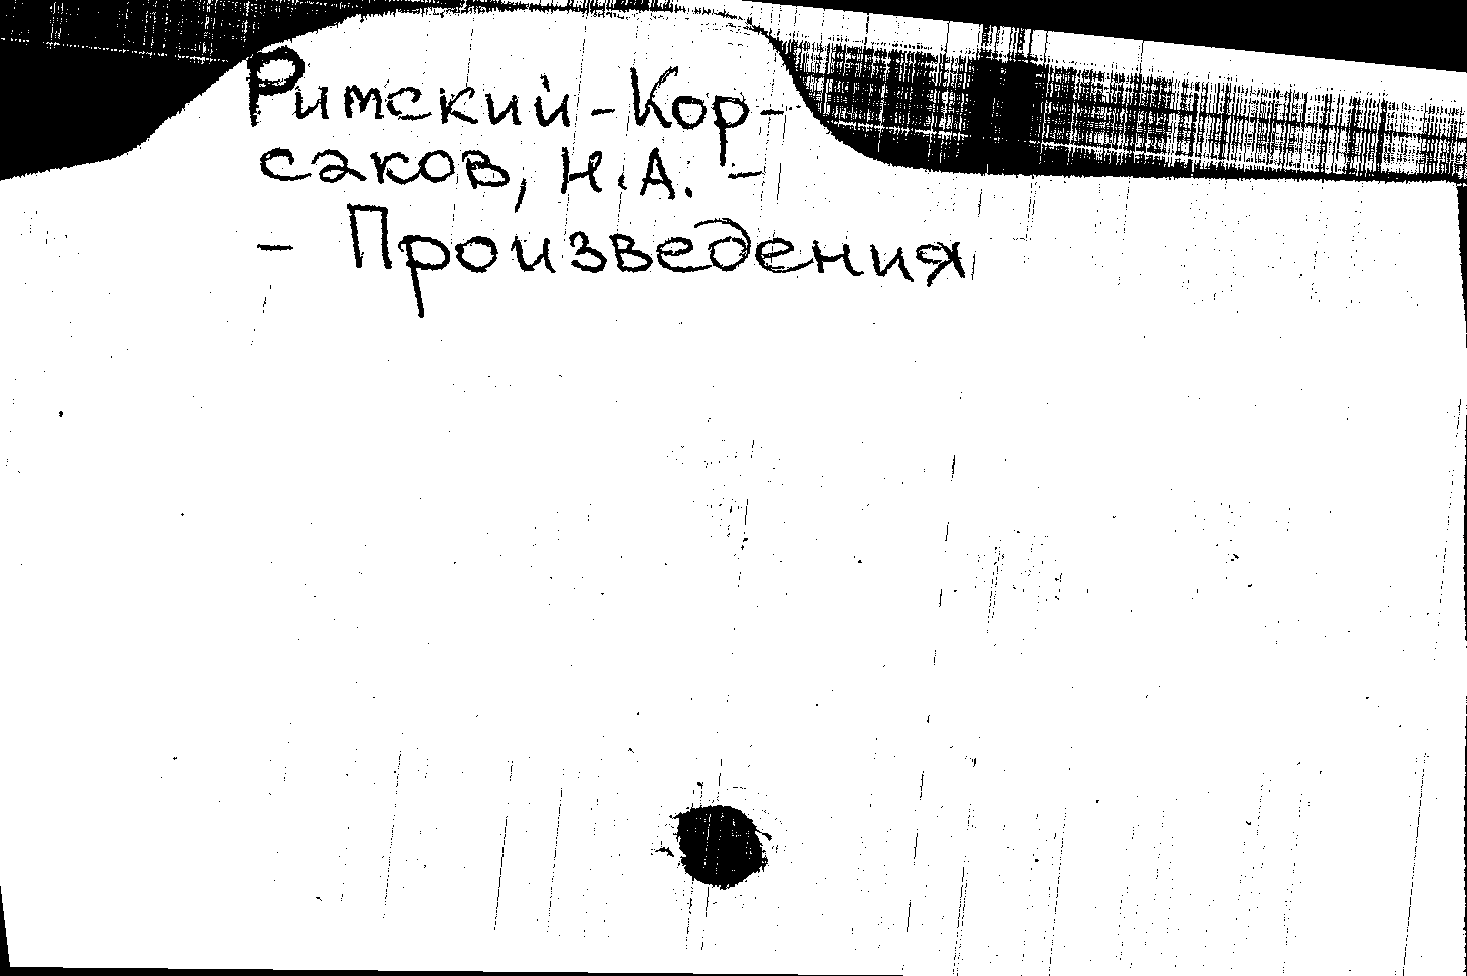 Римский-Кор-
саков, Н.А. -
- Произведения